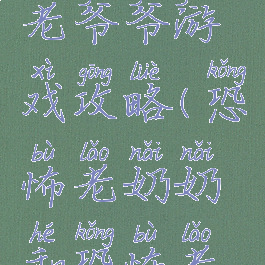 老爷爷游
xì gōng lüè kǒng
戏攻略(恐
bù lǎo nǎi nǎi
怖老奶奶
hé kǒng bù lǎo
和恐怖老